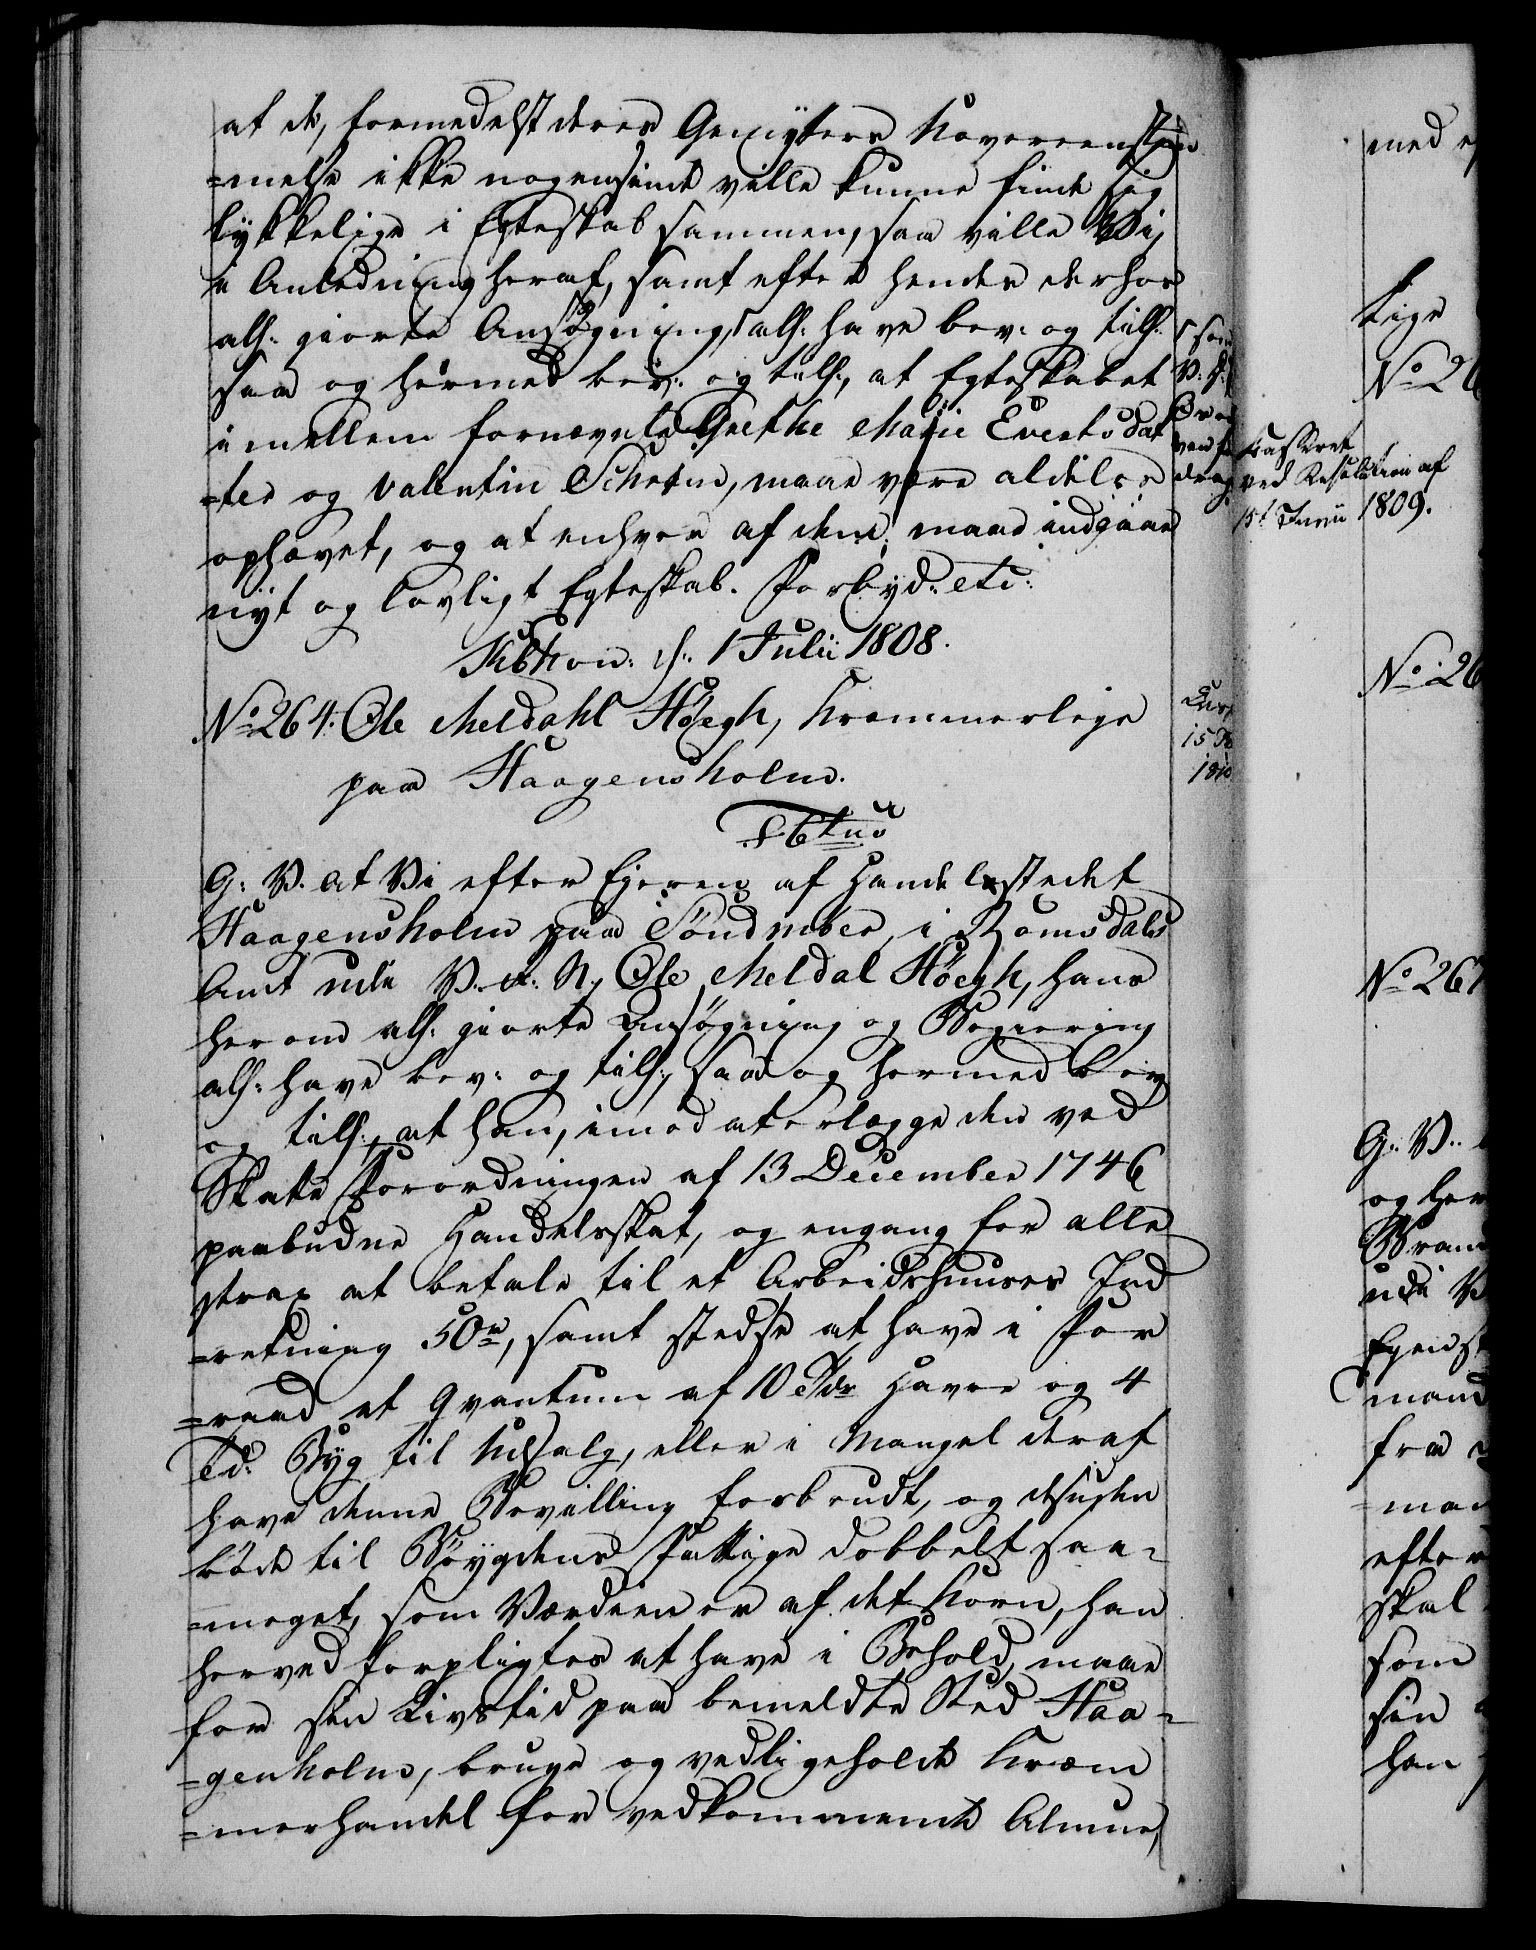 at de, formedelst deres Gemytters Uovereenstem
=melse ikke nogensinde ville kunne finde sig
lykkelige i Egteskab sammen, saa ville Vi,
i Anledning heraf, samt efter hendes derhos
all: giorte Ansøgning, all: have bev: og till:
saa og hermed bev: og till:, at Egteskabet
imellem fornævnte Grethe Marie Evertsdat
=ter og Valentin, maae være aldeles
ophævet, og at enhver af dem, maae indgaae
nyt og lovligt Egteskab. Forbyd: etc:
Kbhvn: d: 1 Julii 1808.
No 264. Ole Meldahl Høegh, Kræmmerleje
paa Haagensholm.
F. 6tus
G: V. at Vi efter Ejeren af Handelsstedet
Haagensholm paa Søndmøer, i Romsdals
Amt udi V. R: N, Ole Meldal Høegh, hans
herom all: giorte Ansøgning og Begiering
all: have bev: og till:, saa og hermed bev
og till:, at han, imod at erlægge den ved
Skatte Forordningen af 13 December 1746
paabudne Handelsskat, og engang for alle
strax at betale til et Arbeidshuuses Ind
=retning 50 rd, samt stedse at have i For
=raad et Qvantum af 10 Tdr Havre og 4
Td: Byg til Udsalg, eller i Mangel deraf
have denne Bevilling forbrudt, og desuden
bøde til Bøygdens Fattige dobbelt saa=
=meget, som Værdien er af det Korn, han
herved forpligtes at have i Behold, maae
for sin Livstid paa bemeldte Sted Haa=
=genholm, bruge og vedligeholde Kræm
=merhandel for vedkommende Almue,
som
V. F.
15
1810
Casseret
ved Resolution af
15t Junii 1809.
med
lige
No 26
No 26
No 267
G: V.
og her
udi V
mand
fra
=man
efter
skal
som
sin
han